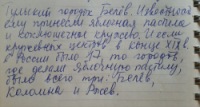 город Белёв. Известность
ему принесли яблочная пастила
и коклюшечное кружево. И если
кружевных центров в конце XIX в.
в России было то городов,
где делали яблочную пастилу,
было всего три: Белёв,
Коломна и Ржев.